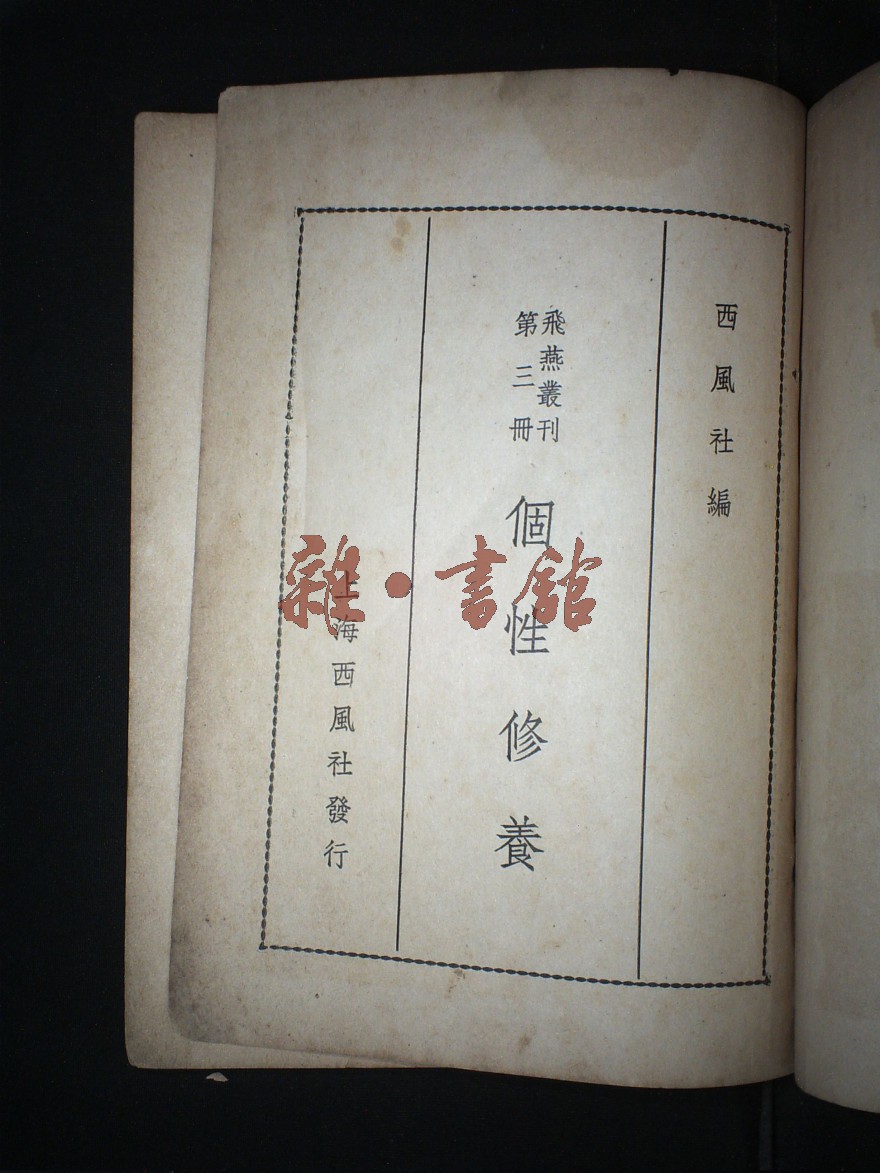 西風社編
飛燕叢刊
第三冊
個性修養
上海西風社發行
雜·書館